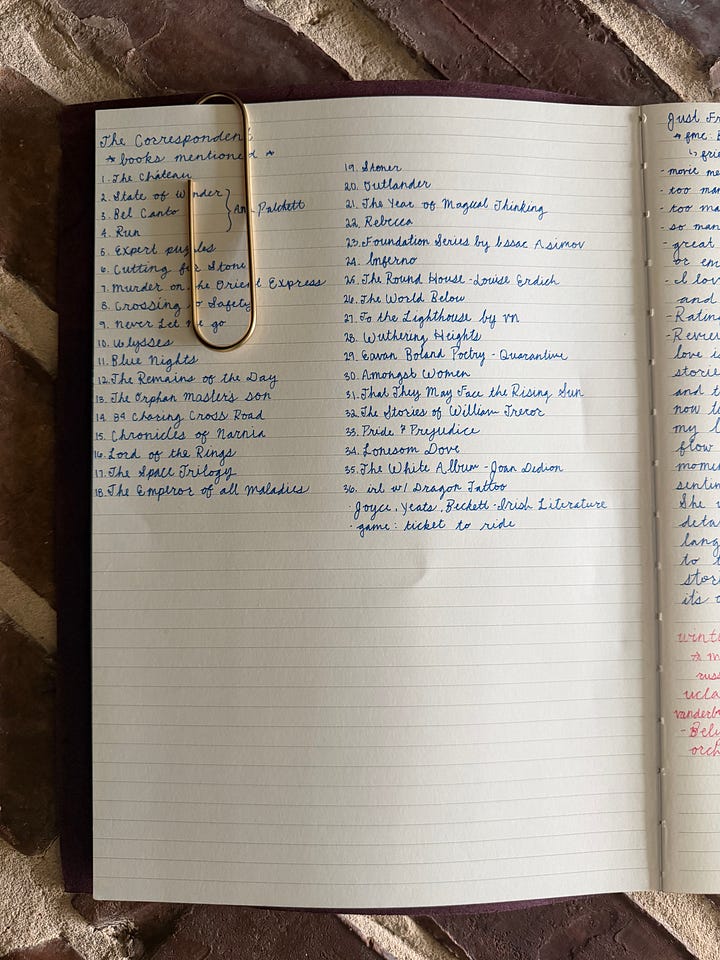 The Correspondent
* books mentioned *
1. The Château
2. State of Wonder
3. Bel Canto } Ann Patchett
4. Run
5. Expert puzzles
6. Cutting for Stone
7. Murder on the Orient Express
8. Crossing to Safety
9. Never Let me go
10. Ulysses
11. Blue Nights
12. The Remains of the Day
13. The Orphan Masters son
14. 84 Charing Cross Road
15. Chronicles of Narnia
16. Lord of the Rings
17. The Space Trilogy
18. The Emperor of all Maladies
19. Stoner
20. Outlander
21. The Year of Magical Thinking
22. Rebecca
23. Foundation Series by Issac Asimov
24. Inferno
25. The Round House - Louise Erdich
26. The World Below
27. To the Lighthouse by vn
28. Wuthering Heights
29. Eavan Boland Poetry - Quarantine
30. Amongst Women
31. That They May Face the Rising Sun
32. The Stories of William Trevor
33. Pride & Prejudice
34. Lonesom Dove
35. The White Album - Joan Didion
36. irl w/ Dragon Tattoo
· Joyce, Yeats, Beckett - Irish Literature
· game: ticket to ride
Just Fr
* fmc: E
↳ frie
- movie me
- too mar
- too ma
- so man
- great
or em
- I lov
and
- Ratin
- Review
love i
storie
and t
now t
my l
flow
mome
senti
She w
deta
lang
to t
stor
it's
wint
* m
rus
ucla
vanderb
- Bely
orch